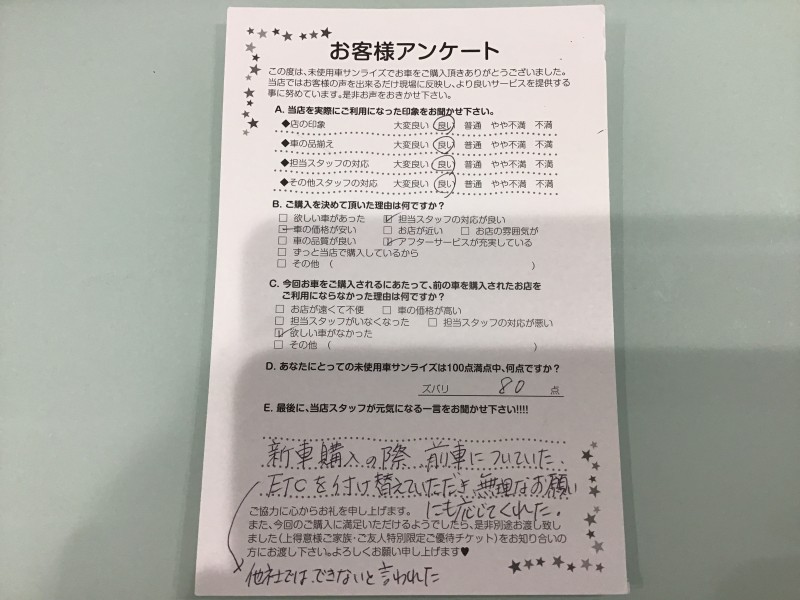 お客様アンケート
この度は、未使用車サンライズでお車をご購入頂きありがとうございました。
当店ではお客様の声を出来るだけ現場に反映し、より良いサービスを提供する
事に努めています。是非お声をおきかせ下さい。
A. 当店を実際にご利用になった印象をお聞かせ下さい。
◆店の印象 大変良い 良い 普通 やや不満 不満
◆車の品揃え 大変良い 良い 普通 やや不満 不満
◆担当スタッフの対応 大変良い 良い 普通 やや不満 不満
◆その他スタッフの対応 大変良い 良い 普通 やや不満 不満
B. ご購入を決めて頂いた理由は何ですか？
□ 欲しい車があった ☑ 担当スタッフの対応が良い
☑ 車の価格が安い □ お店が近い □ お店の雰囲気が
□ 車の品質が良い ☑ アフターサービスが充実している
□ ずっと当店で購入しているから
□ その他 （ ）
C. 今回お車をご購入されるにあたって、前の車を購入されたお店を
ご利用にならなかった理由は何ですか？
□ お店が遠くて不便 □ 車の価格が高い
□ 担当スタッフがいなくなった □ 担当スタッフの対応が悪い
☑ 欲しい車がなかった
□ その他 （ ）
D. あなたにとっての未使用車サンライズは100点満点中、何点ですか？
ズバリ 80 点
E. 最後に、当店スタッフが元気になる一言をお聞かせ下さい!!!!
新車購入の際 前車についていた
ETCを付け替えていただき 無理なお願い
にも応じてくれた。
ご協力に心からお礼を申し上げます。
また、今回のご購入に満足いただけるようでしたら、是非別途お渡し致し
ました（上得意様ご家族・ご友人特別限定ご優待チケット）をお知り合いの
方にお渡し下さい。よろしくお願い申し上げます♥
他社では できないと言われた